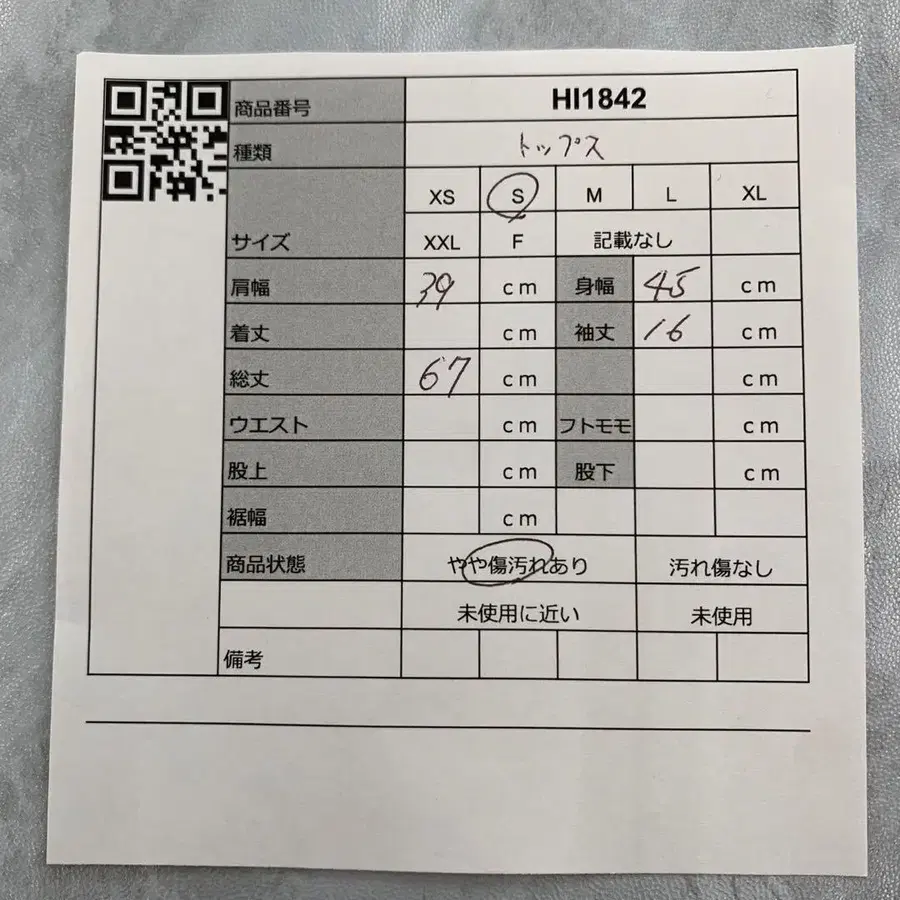 商品番号 HI1842
種類 トップス
XS S M L XL
サイズ XXL F 記載なし
肩幅 39 cm 身幅 45 cm
着丈 cm 袖丈 16 cm
総丈 67 cm cm
ウエスト cm フトモモ cm
股上 cm 股下 cm
裾幅 cm
商品状態 やや傷汚れあり 汚れ傷なし
未使用に近い 未使用
備考